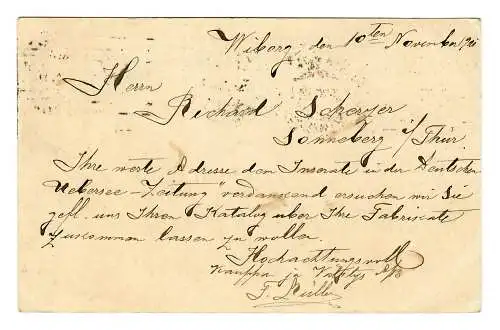 Wiborg den 10ten November 1901
Herrn
Richard Scherzer
Sonneberg i/Thür.
Ihre werte Adresse dem Inserate in der Deutschen
Uebersee-Zeitung" verdankend ersuchen wir Sie
gefl. uns Ihren Katalog über Ihre Fabricate
zukommen lassen zu wollen.
Hochachtungsvoll
Kauppa ja